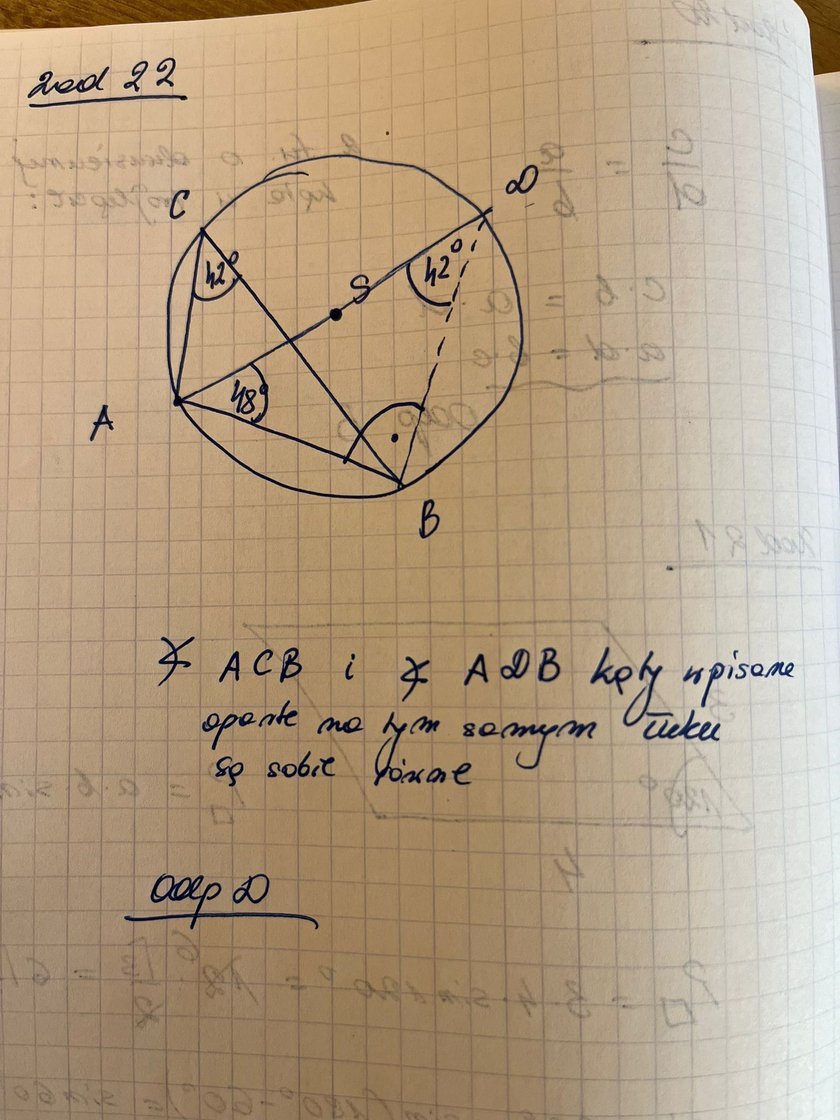 zad 22
C
D
42°
42°
S
A
48°
B
∢ ACB i ∢ ADB kąty wpisane
oparte na tym samym łuku
są sobie równe
Odp D